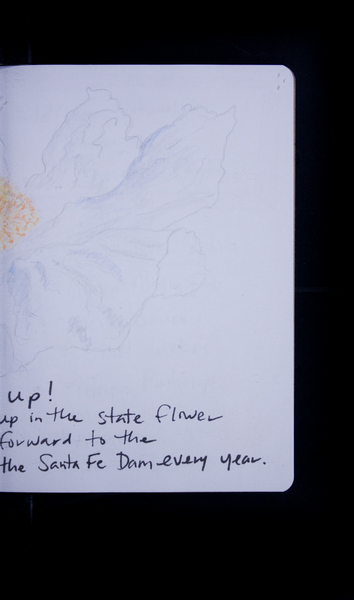 up!
up in the state flower
forward to the
the Santa Fe Dam every year.